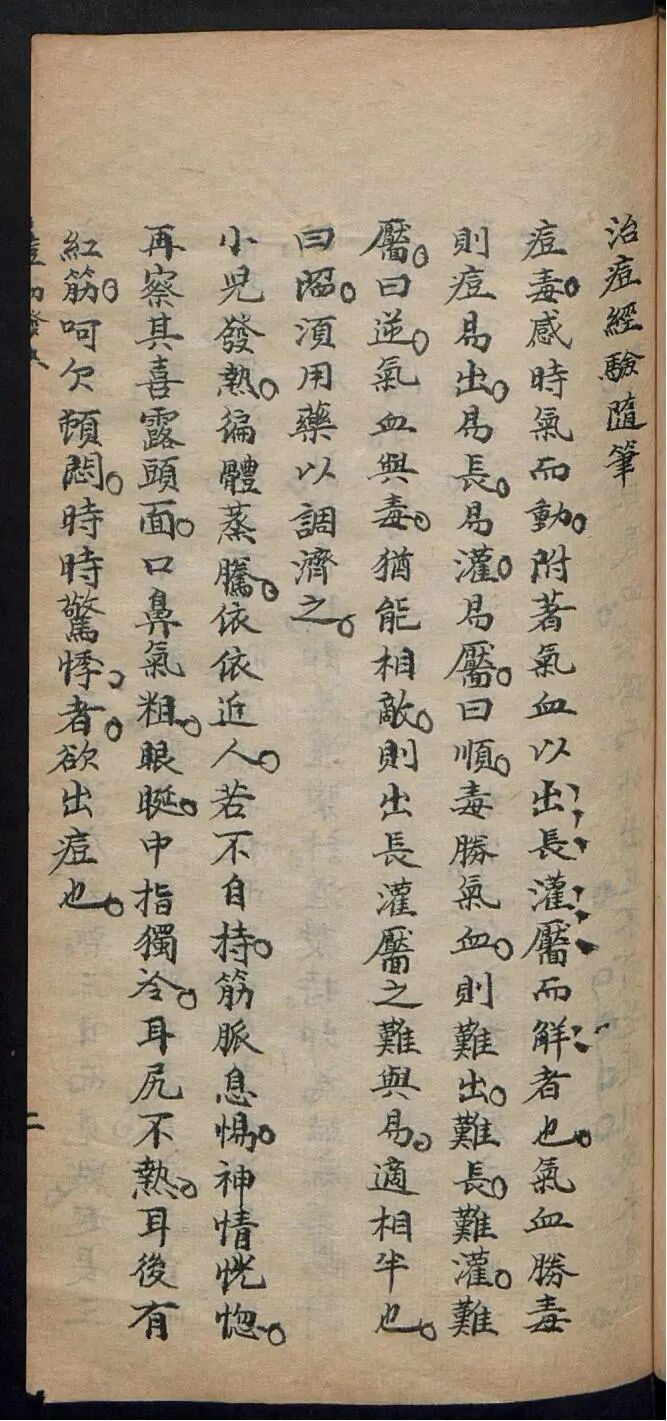 治痘經驗隨筆
痘毒。感時氣而動。附著氣血以出、長、灌、靨、而解者也。氣血勝毒
則痘易出。易長。易灌。易靨。曰順。毒勝氣血。則難出。難長。難灌。難
靨。曰逆。氣血與毒。猶能相敵。則出長灌靨之難與易。適相半也。
曰。須用藥以調濟之。
小児發熱。徧體蒸騰。依依近人。若不自持。筋脈息惕。神情恍惚。
再察其喜露頭面。口鼻氣粗。眼眍。中指獨冷。耳尻不熱。耳後有
紅筋。呵欠頓悶。時時驚悸。者。欲出痘也。
二